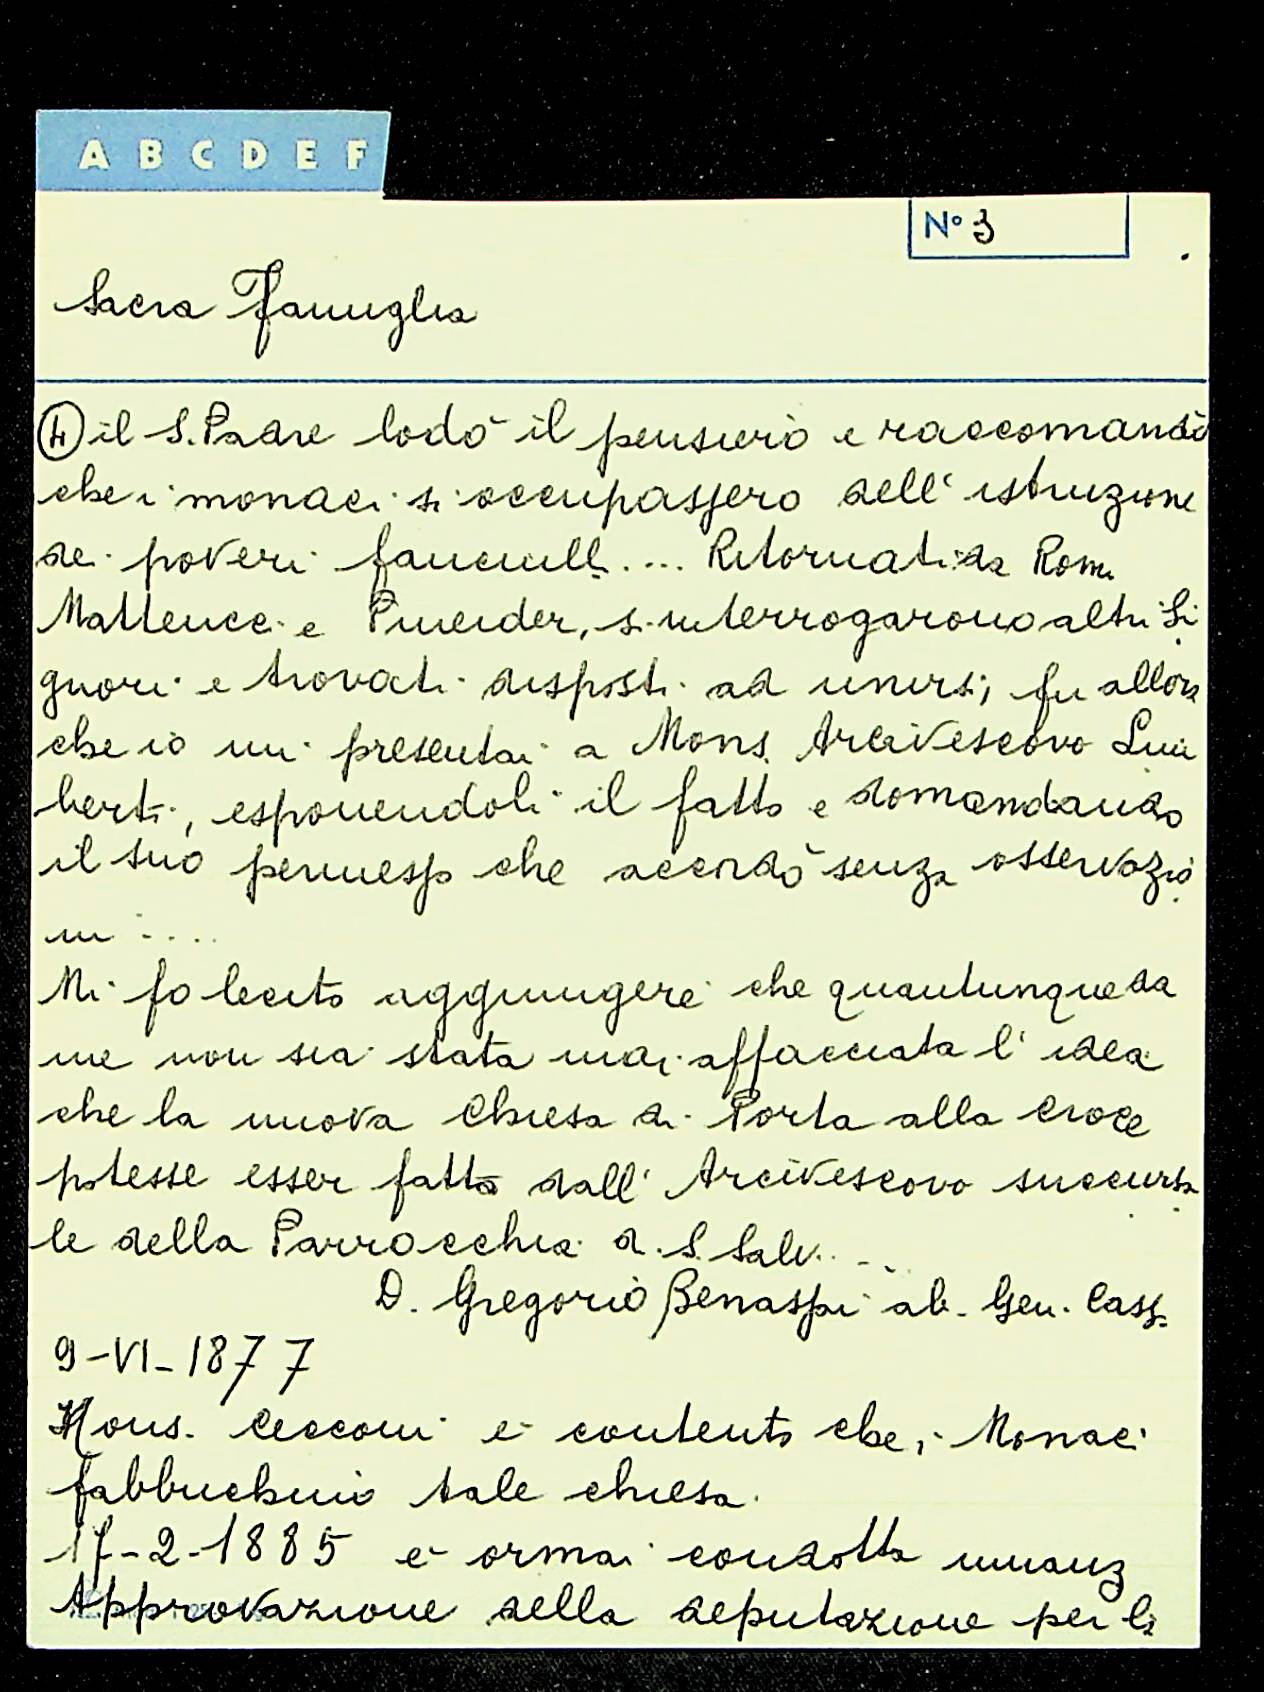 A B C D E F
N° 3
Sacra Famiglia
④ il S. Padre lodò il pensiero e raccomandò
che i monaci si occupassero dell' istruzione
dei poveri fanciulli.... Ritornati da Roma
Matteucci e Pineider, si interrogarono altri Si
gnori e trovati disposti ad unirsi; fu allora
che io mi presentai a Mons. Arcivescovo Lim
berti, esponendoli il fatto e domandando
il suo permesso che accordò senza osservazio
ni ....
Mi fo lecito aggiungere che quantunque da
me non sia stata mai affacciata l' idea
che la nuova Chiesa di Porta alla Croce
potesse esser fatta dall' Arcivescovo succursa
le della Parrocchia di S. Salv....
D. Gregorio Benassai ab. Gen. Cass.
9-VI-1877
Mons. Cecconi è contento che i Monaci
fabbrichino tale chiesa.
17-2-1885 è ormai condotta innanz
Approvazione della deputazione per la